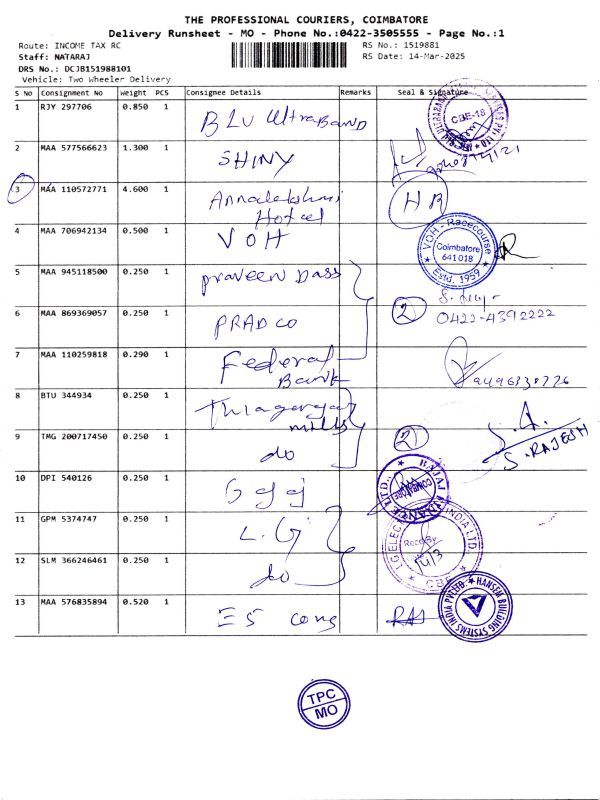 THE PROFESSIONAL COURIERS, COIMBATORE
Delivery Runsheet - MO - Phone No.:0422-3505555 - Page No.:1
Route: INCOME TAX RC
RS No.: 1519881
Staff: NATARAJ
RS Date: 14-Mar-2025
DRS No.: DCJB151988101
Vehicle: Two Wheeler Delivery
S No Consignment No Weight PCS Consignee Details Remarks Seal & Signature
1 RJY 297706 0.850 1 BLU UltraBAND
CBE-18
2 MAA 577566623 1.300 1 SHINY
3 MAA 110572771 4.600 1 Annalakshmi Hotel HB
4 MAA 706942134 0.500 1 VOH
VOH - Racecourse
Coimbatore
641018
Estd. 1959
5 MAA 945118500 0.250 1 praveen Dass
6 MAA 869369057 0.250 1 PRADCO 2 0422-4392222
7 MAA 110259818 0.290 1 Federal Bank
8 BTU 344934 0.250 1 mills
9 TMG 200717450 0.250 1 do 2 S.RAJESH
10 DPI 540126 0.250 1
COIMBATORE
11 GPM 5374747 0.250 1 L.G
INDIA LTD.
CBE
12 SLM 366246461 0.250 1 do
13 MAA 576835894 0.520 1 ES cong
HANSEN BUILDING SYSTEMS INDIA PVT LTD.
TPC
MO